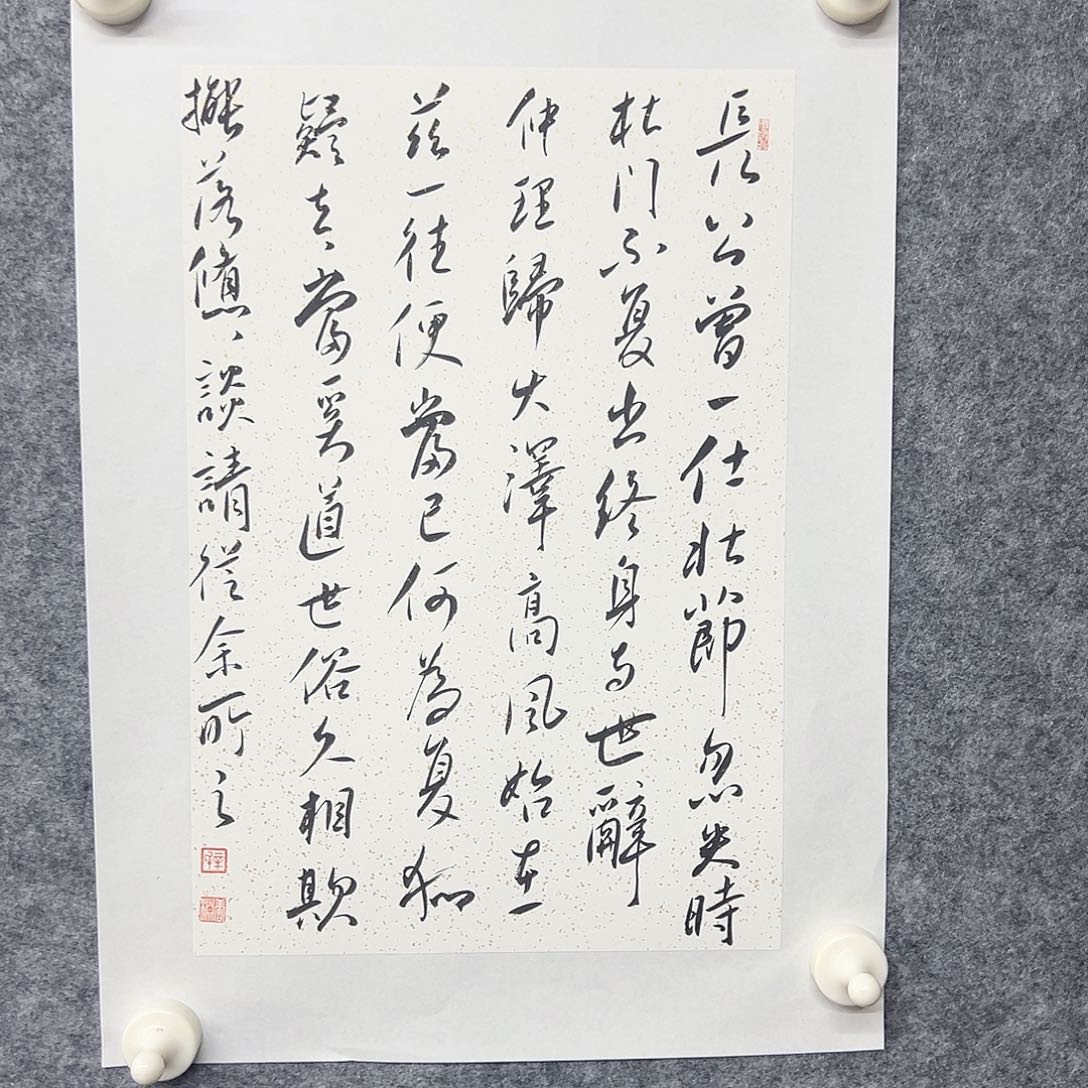 長公曾一仕壯節忽失時
杜門不复出終身与世辭
仲理歸大澤高風始在
茲一往便當已何為复狐
疑去々當奚道世俗久相欺
擺落悠々談請從余所之